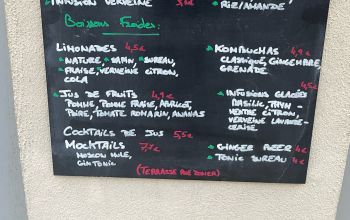 INFUSION VERVEINE 5
RIZ/AMANDE
Boissons Froides:
LIMONADES 4,5€
NATURE SAPIN, SUREAU,
FRAISE, VERVEINE CITRON,
COLA
JUS DE FRUITS 4,9€
POMME, POMME FRAISE, ABRICOT,
POIRE, TOMATE ROMARIN, ANANAS
COCKTAILS DE JUS 5,5€
MOCKTAILS 7,7€
MOSCOW MULE,
GIN TONIC
KOMBUCHAS 4,9€
CLASSIQUE, GINGEMBRE,
GRENADE
4,5€
INFUSIONS GLACÉES
BASILIC, THYM-
MENTHE CITRON,
VERVEINE LAVANDE-
GINGER BEER 4€
TONIC SUREAU 4€
(TERRASSE